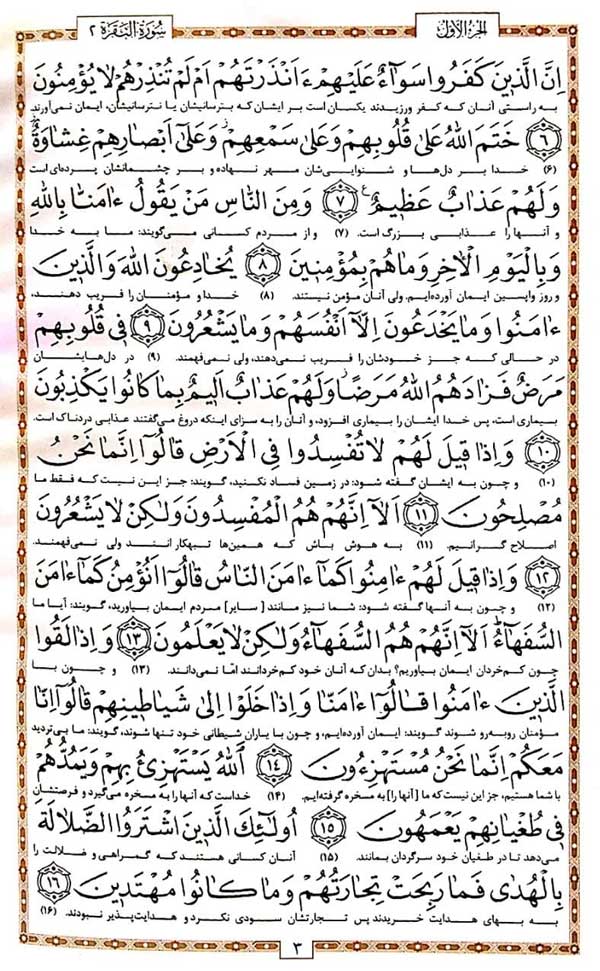 الجزء الأول
سورة البقرة ٢
اِنَّ الَّذینَ كَفَرُوا سَوَٓاءٌ عَلَیْهِمْ ءَاَنْذَرْتَهُمْ اَمْ لَمْ تُنْذِرْهُمْ لایُؤْمِنُونَ
به راستی آنان که کفر ورزیدند یکسان است بر ایشان که بترسانیشان یا نترسانیشان، ایمان نمی‌آورند
﴿٦﴾ خَتَمَ اللهُ عَلیٰ قُلُوبِهِمْ وَعَلیٰ سَمْعِهِمْ وَعَلیٰٓ اَبْصارِهِمْ غِشاوَةٌ
(۶) خدا بر دل‌ها و شنوایی‌شان مهر نهاده و بر چشمانشان پرده‌ای است
وَلَهُمْ عَذابٌ عَظیمٌ ﴿٧﴾ وَمِنَ النّاسِ مَنْ یَقُولُ ءامَنّا بِاللهِ
و آنها را عذابی بزرگ است. (۷) و از مردم کسانی می‌گویند: ما به خدا
وَبِالْیَوْمِ الْاٰخِرِ وَماهُمْ بِمُؤْمِنینَ ﴿٨﴾ یُخادِعُونَ اللهَ وَالَّذینَ
و روز واپسین ایمان آورده‌ایم. ولی آنان مؤمن نیستند. (۸) خدا و مؤمنان را فریب دهند،
ءامَنُوا وَمایَخْدَعُونَ اِلّآ اَنْفُسَهُمْ وَمایَشْعُرُونَ ﴿٩﴾ فی قُلُوبِهِمْ
در حالی که جز خودشان را فریب نمی‌دهند، ولی نمی‌فهمند. (۹) در دل‌هایشان
مَرَضٌ فَزادَهُمُ اللهُ مَرَضًا وَلَهُمْ عَذابٌ اَلیمٌ بِما كانُوا یَكْذِبُونَ
بیماری است، پس خدا ایشان را بیماری افزود، و آنان را به سزای اینکه دروغ می‌گفتند عذابی دردناک است.
﴿١٠﴾ وَاِذا قیلَ لَهُمْ لاتُفْسِدُوا فِی الْاَرْضِ قالُوٓا اِنَّما نَحْنُ
(۱۰) و چون به ایشان گفته شود: در زمین فساد نکنید، گویند: جز این نیست که فقط ما
مُصْلِحُونَ ﴿١١﴾ اَلآ اِنَّهُمْ هُمُ الْمُفْسِدُونَ وَلٰكِنْ لایَشْعُرُونَ
اصلاح گرانیم. (۱۱) به هوش باش که همین‌ها تبهکار انند ولی نمی‌فهمند.
﴿١٢﴾ وَاِذا قیلَ لَهُمْ ءامِنُوا كَمآ ءامَنَ النّاسُ قالُوٓا اَنُؤْمِنُ كَمآ ءامَنَ
(۱۲) و چون به آنها گفته شود: شما نیز مانند [سایر] مردم ایمان بیاورید، گویند: آیا ما
السُّفَهآءُ اَلآ اِنَّهُمْ هُمُ السُّفَهآءُ وَلٰكِنْ لایَعْلَمُونَ ﴿١٣﴾ وَاِذا لَقُوا
چون کم‌خردان ایمان بیاوریم؟ بدان که آنان خود کم‌خردانند امّا نمی‌دانند. (۱۳) و چون با
الَّذینَ ءامَنُوا قالُوٓا ءامَنّا وَاِذا خَلَوْا اِلیٰ شَیاطینِهِمْ قالُوٓا اِنّا
مؤمنان روبه‌رو شوند گویند: ایمان آورده‌ایم، و چون با یاران شیطانی خود تنها شوند، گویند: ما بی‌تردید
مَعَكُمْ اِنَّما نَحْنُ مُسْتَهْزِءُونَ ﴿١٤﴾ اَللهُ یَسْتَهْزِئُ بِهِمْ وَیَمُدُّهُمْ
با شما هستیم، جز این نیست که ما [آنها را] به مسخره گرفته‌ایم. (۱۴) خداست که آنها را به مسخره می‌گیرد و فرصتشان
فی طُغْیانِهِمْ یَعْمَهُونَ ﴿١٥﴾ اُولٰٓئِكَ الَّذینَ اشْتَرَوُا الضَّلالَةَ
می‌دهد تا در طغیان خود سرگردان بمانند. (۱۵) آنان کسانی هستند که گمراهی و ضلالت را
بِالْهُدیٰ فَما رَبِحَتْ تِجارَتُهُمْ وَما كانُوا مُهْتَدینَ ﴿١٦﴾
به بهای هدایت خریدند پس تجارتشان سودی نکرد و هدایت‌پذیر نبودند. (۱۶)
٣